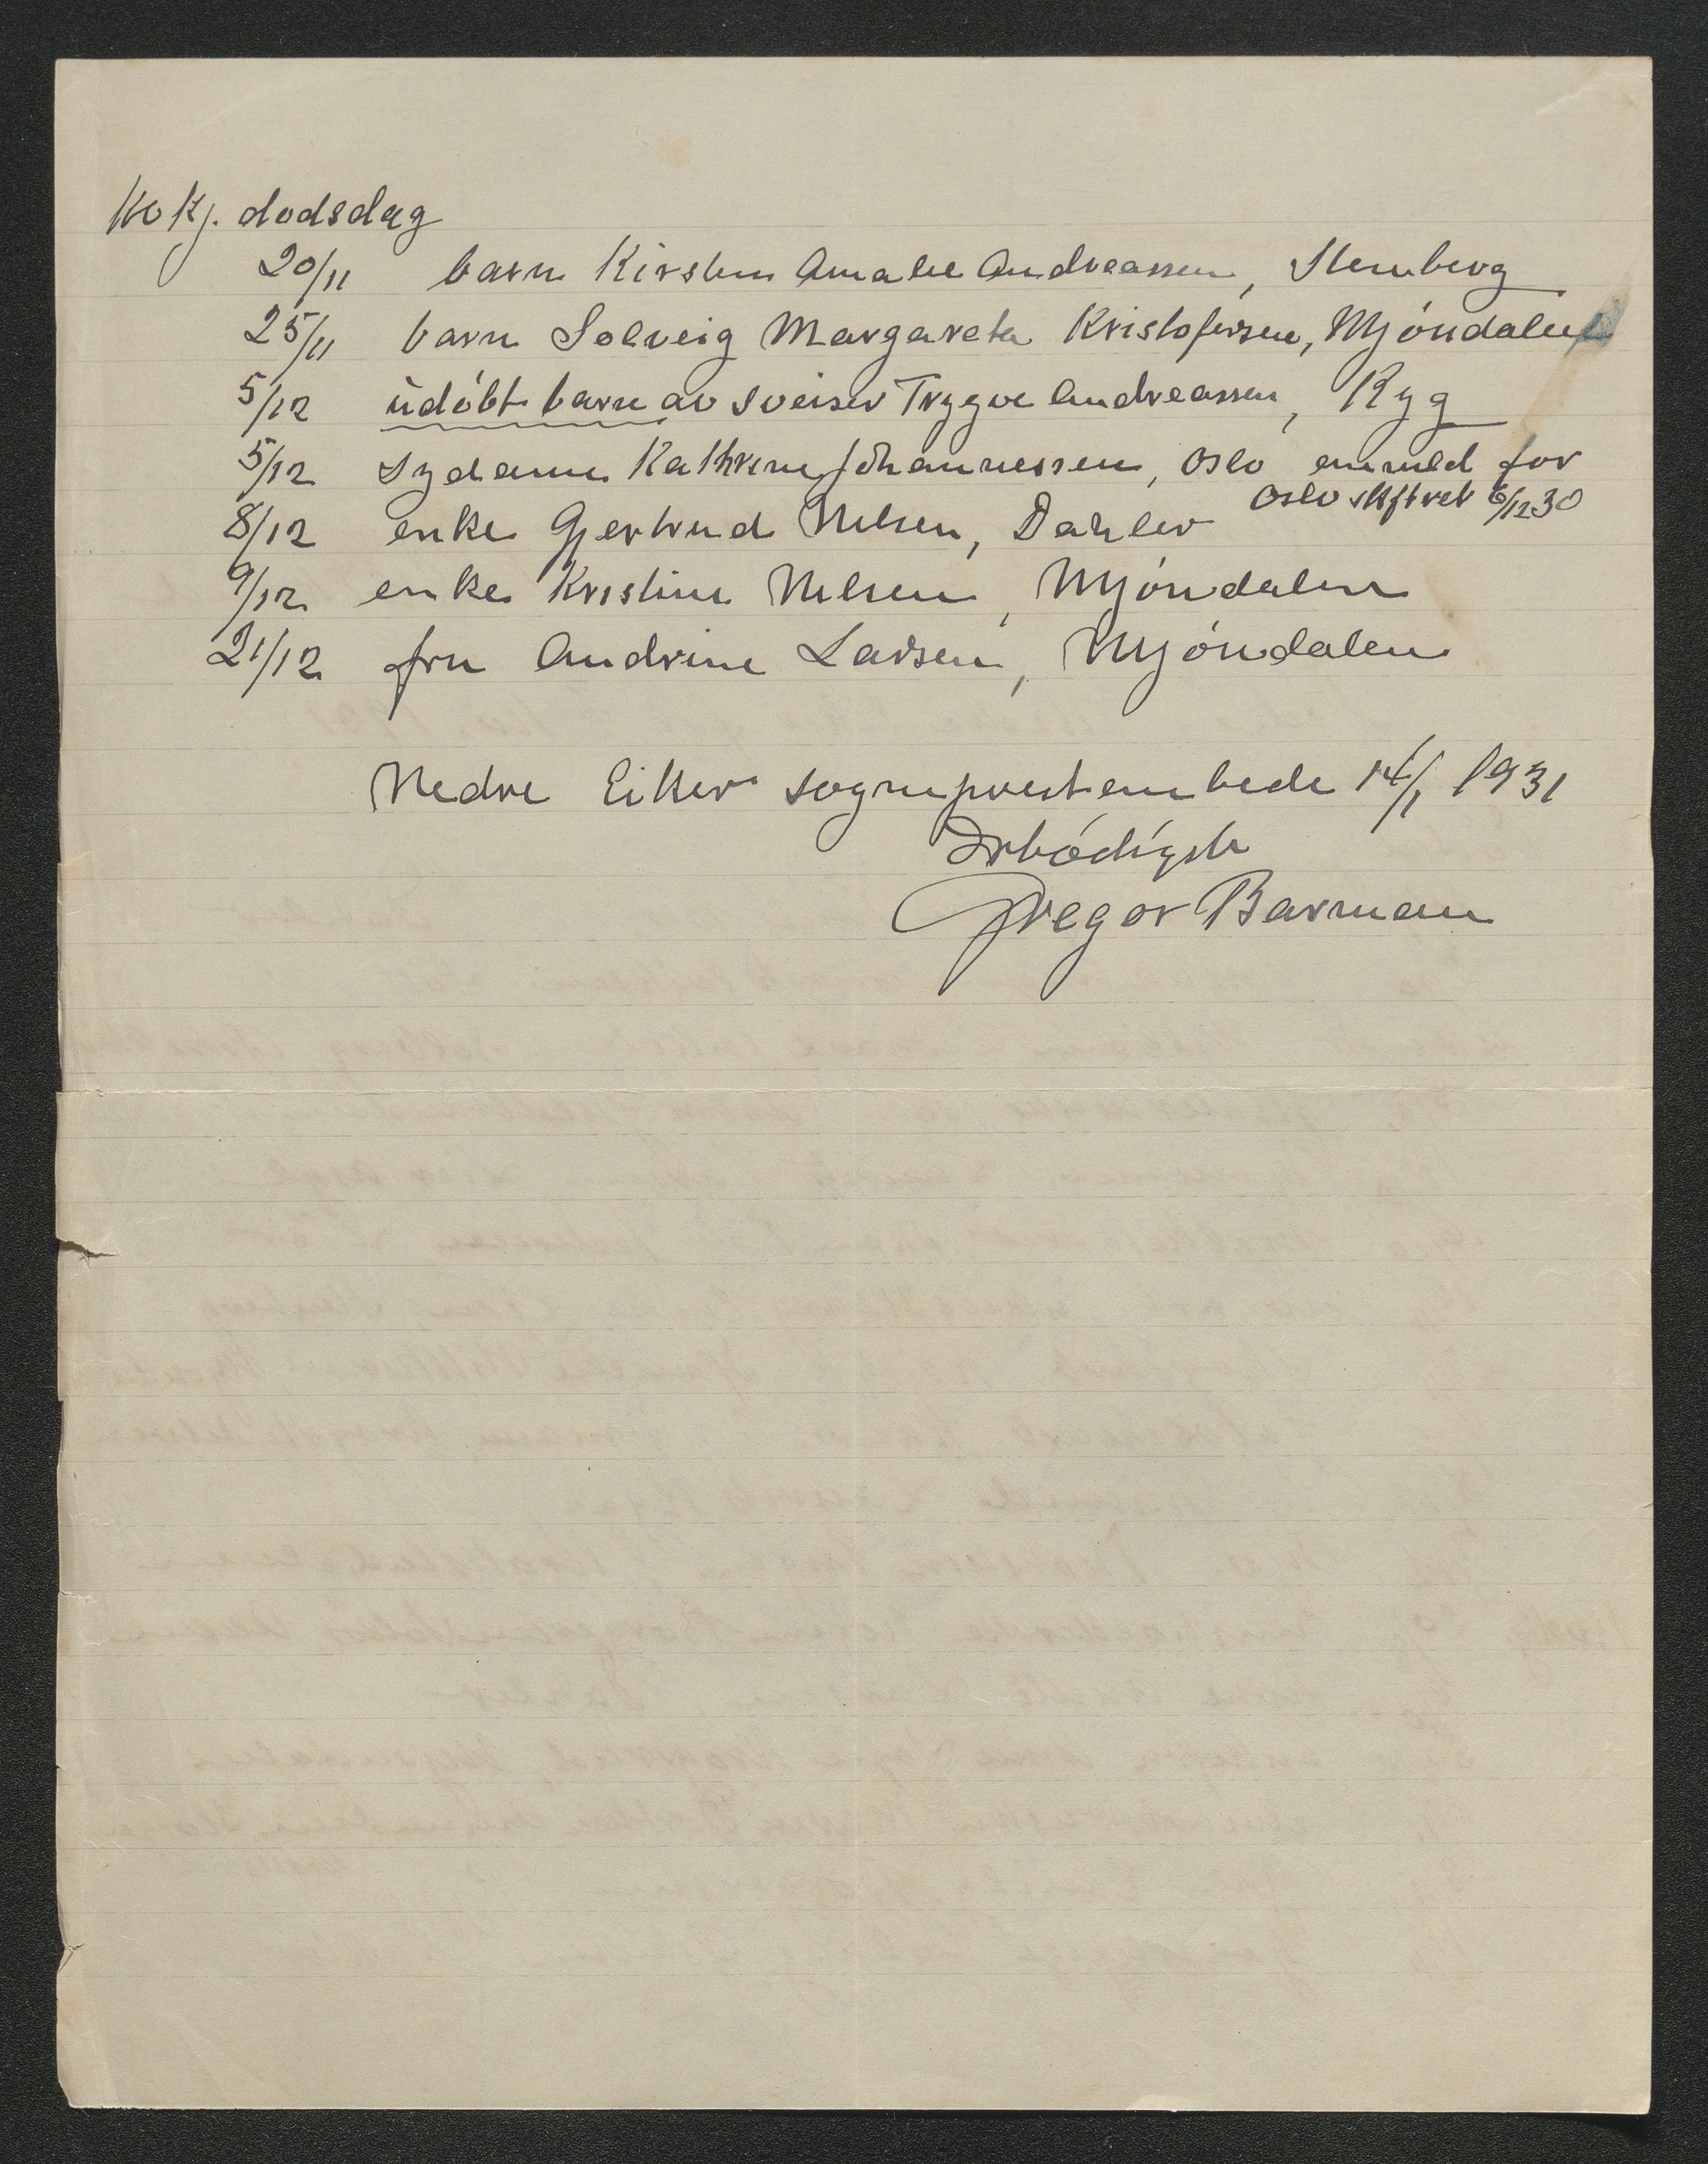 Kokj. dødsdag
20/11 barn Kirsten Amalie Andreassen, Stenberg
25/11 barn Solveig Margareta Kristofersen, Mjóndalen
5/12 udóbt barn av sveiser Trygve Andreassen, Ryg
5/12 sydame Kathrine Johannessen, Oslo anmeld for
Oslo skifteret 6/12 30
8/12 enke Gjertrud Nilsen, Dahler
9/12 enke Kristine Nilsen, Mjóndalen
21/12 fru Andrine Larsen, Mjóndalen
Nedre Eiker sogneprestembede 14/1 1931
Ærbódigst
Gregor Barman